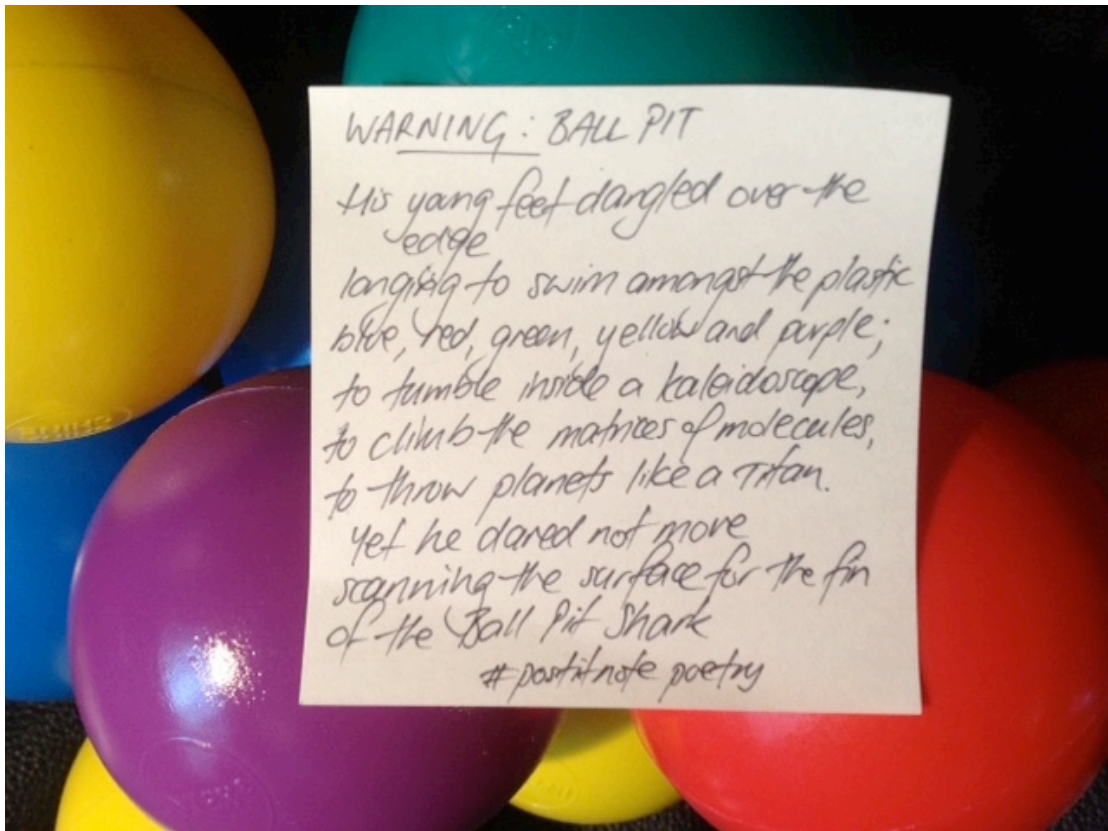 WARNING: BALL PIT
His young feet dangled over the
edge
longing to swim amongst the plastic
blue, red, green, yellow and purple;
to tumble inside a kaleidoscope,
to climb the matrices of molecules,
to throw planets like a Titan.
Yet he dared not move
scanning the surface for the fin
of the Ball Pit Shark
#postitnote poetry